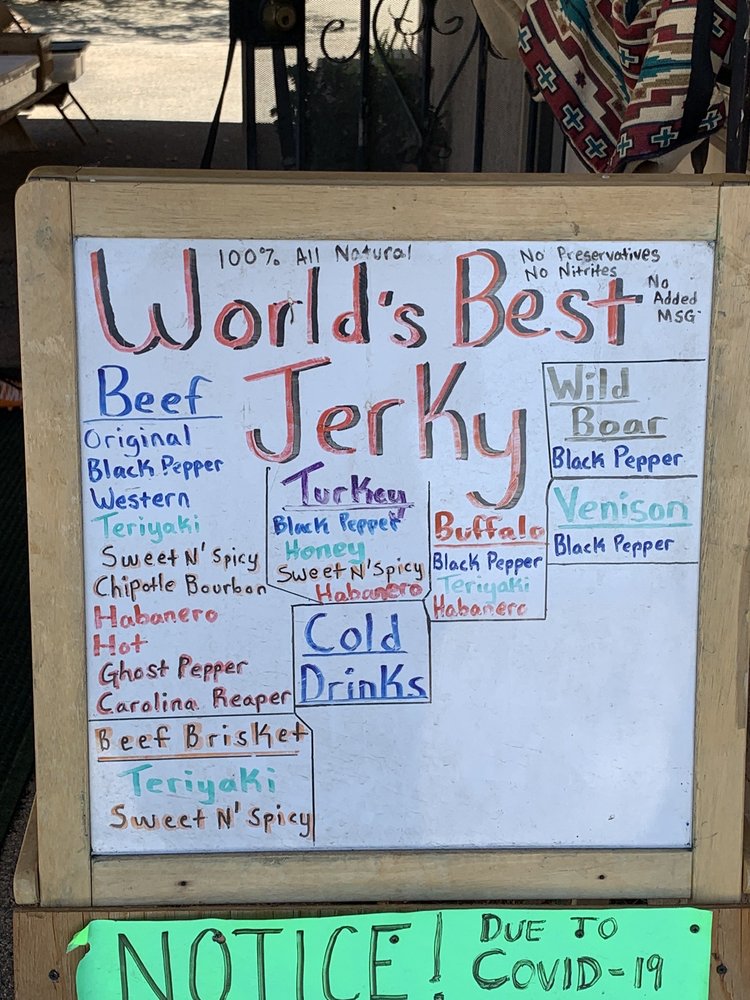 100% All Natural
No Preservatives
No Nitrites
No
Added
MSG
World's Best
Jerky
Beef
Original
Black Pepper
Western
Teriyaki
Sweet N' Spicy
Chipotle Bourbon
Habanero
Hot
Ghost Pepper
Carolina Reaper
Beef Brisket
Teriyaki
Sweet N' Spicy
Turkey
Black Pepper
Honey
Sweet N' Spicy
Habanero
Cold
Drinks
Buffalo
Black Pepper
Teriyaki
Habanero
Wild
Boar
Black Pepper
Venison
Black Pepper
NOTICE! DUE TO
COVID-19